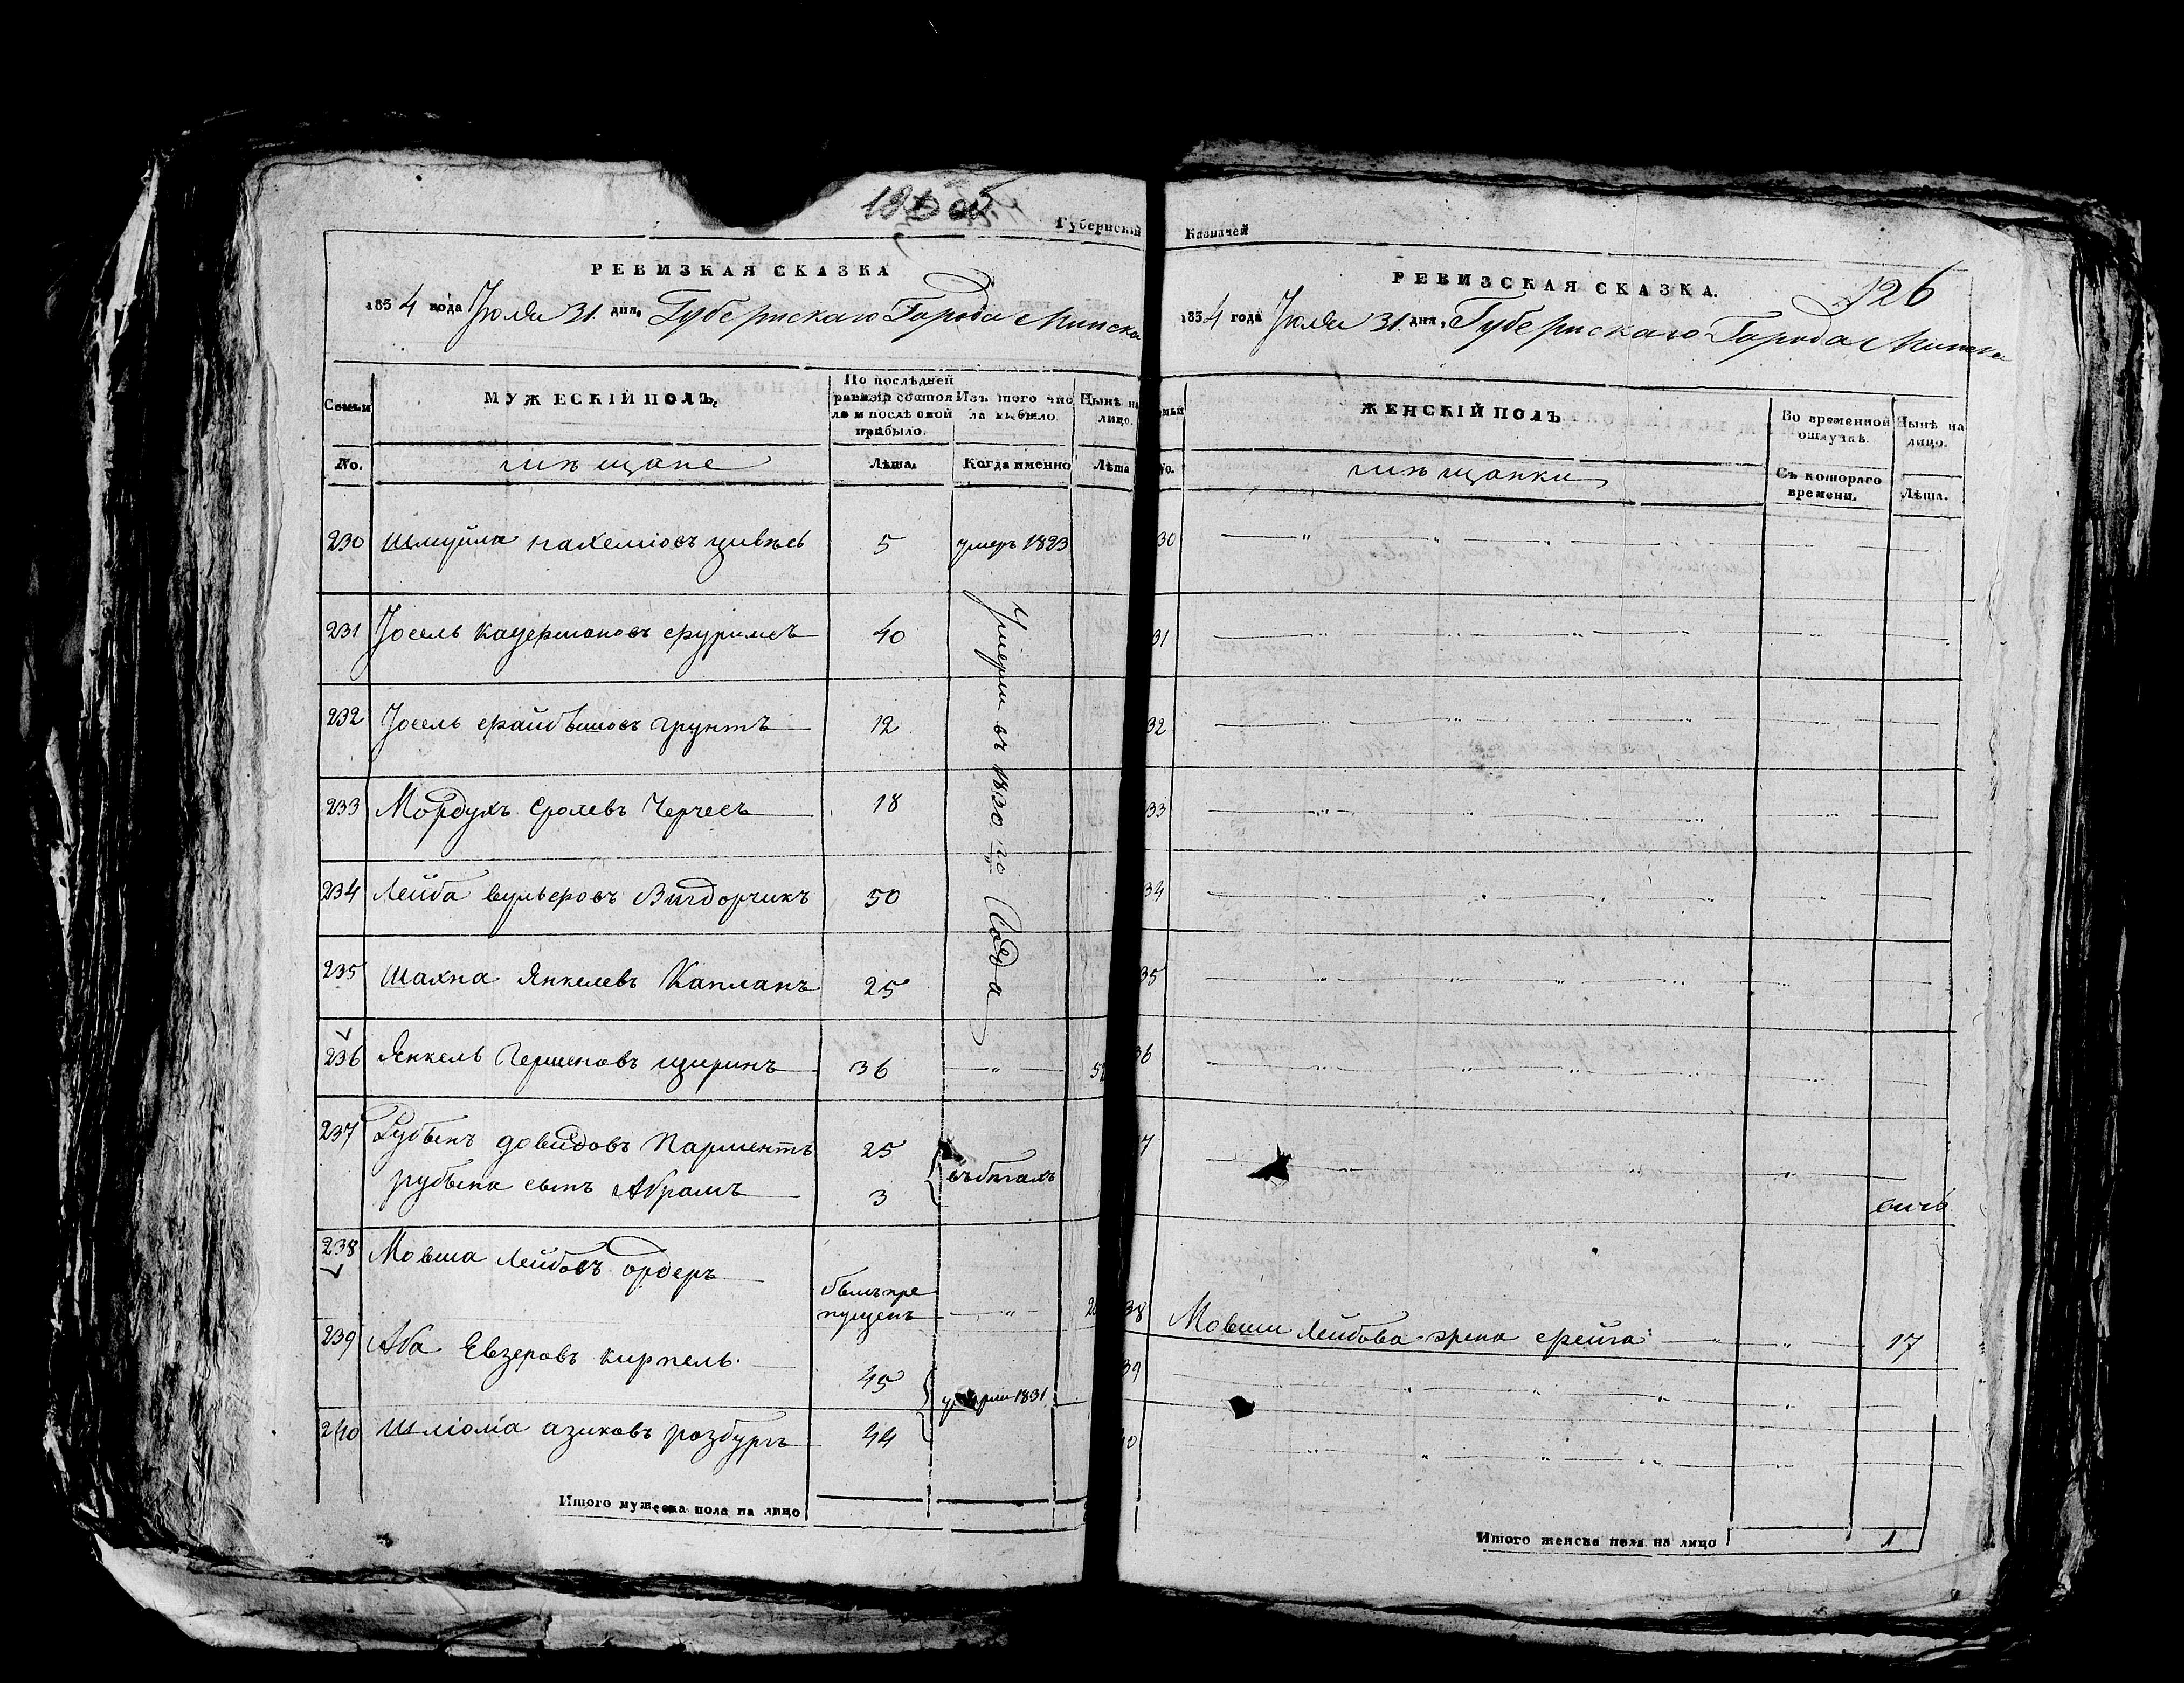 Губернскій
РЕВИЗКАЯ СКАЗКА
1834 года Іюля 31. дня, Губернскаго Города Минска
Семьи
МУЖЕСКІЙ ПОЛЪ,
По послѣдней ревизіи состоя ло и послѣ оной прибыло.
Изъ того чис ла выбыло.
Нынѣ на лицо.
No.
мѣщане
Лѣта.
Когда именно
Лѣта
230 Шмуйла Нахеміовъ 5 умеръ 1823
231 Іосель 40
Умерли въ 1830 го Года
232 Іосель Грунтъ 12
233 Мордухъ Сролевъ Черчесъ 18
234 Лейба Вульфовъ Вигдорчикъ 50
235 Шахна Янкелевъ Капланъ 25
236 Янкель Гершеновъ Щиринъ 36 — " —
237 Рубѣнъ Довидовъ Парментъ 25
въ бѣгахъ
Рубѣна сынъ Абрамъ 3
238 Мовша Лейбовъ Ордеръ
былъ пре
пущенъ — " —
239 Аба Евзеровъ Кирпель 45
умерли 1831
240 Шліома Азиковъ Розбургъ 44
Итого мужеска пола на лицо
Казначей
126
РЕВИЗСКАЯ СКАЗКА.
1834 года Іюля 31. дня, Губернскаго Города Минска
мьи
ЖЕНСКІЙ ПОЛЪ
Во временной отлучкѣ.
Нынѣ на лицо.
No.
мѣщанки
Съ котораго времени.
Лѣта.
30
31
32
33
34
35
36
7
38 Мовши Лейбова жена Фейга 17
39
40
Итого женска пола на лицо 1